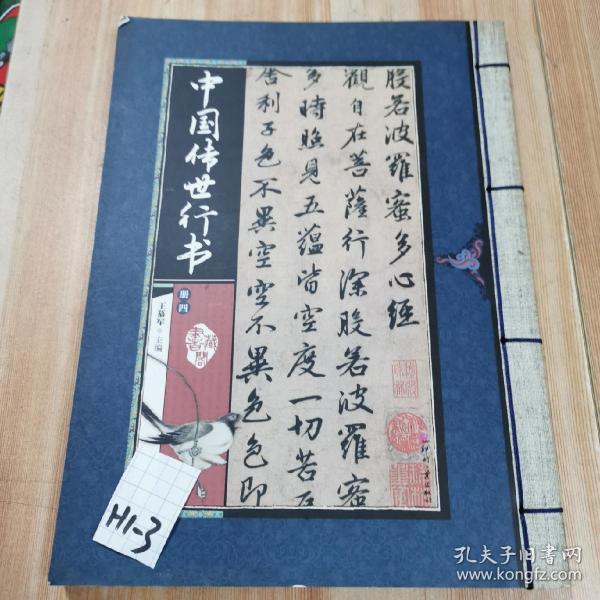 中国传世行书
册四
王慕军 主编
藏书阁
般若波羅蜜多心經
觀自在菩薩行深般若波羅蜜
多時照見五蘊皆空度一切苦厄
舍利子色不異空空不異色色即
H1-3
孔夫子旧书网
www.kongfz.com